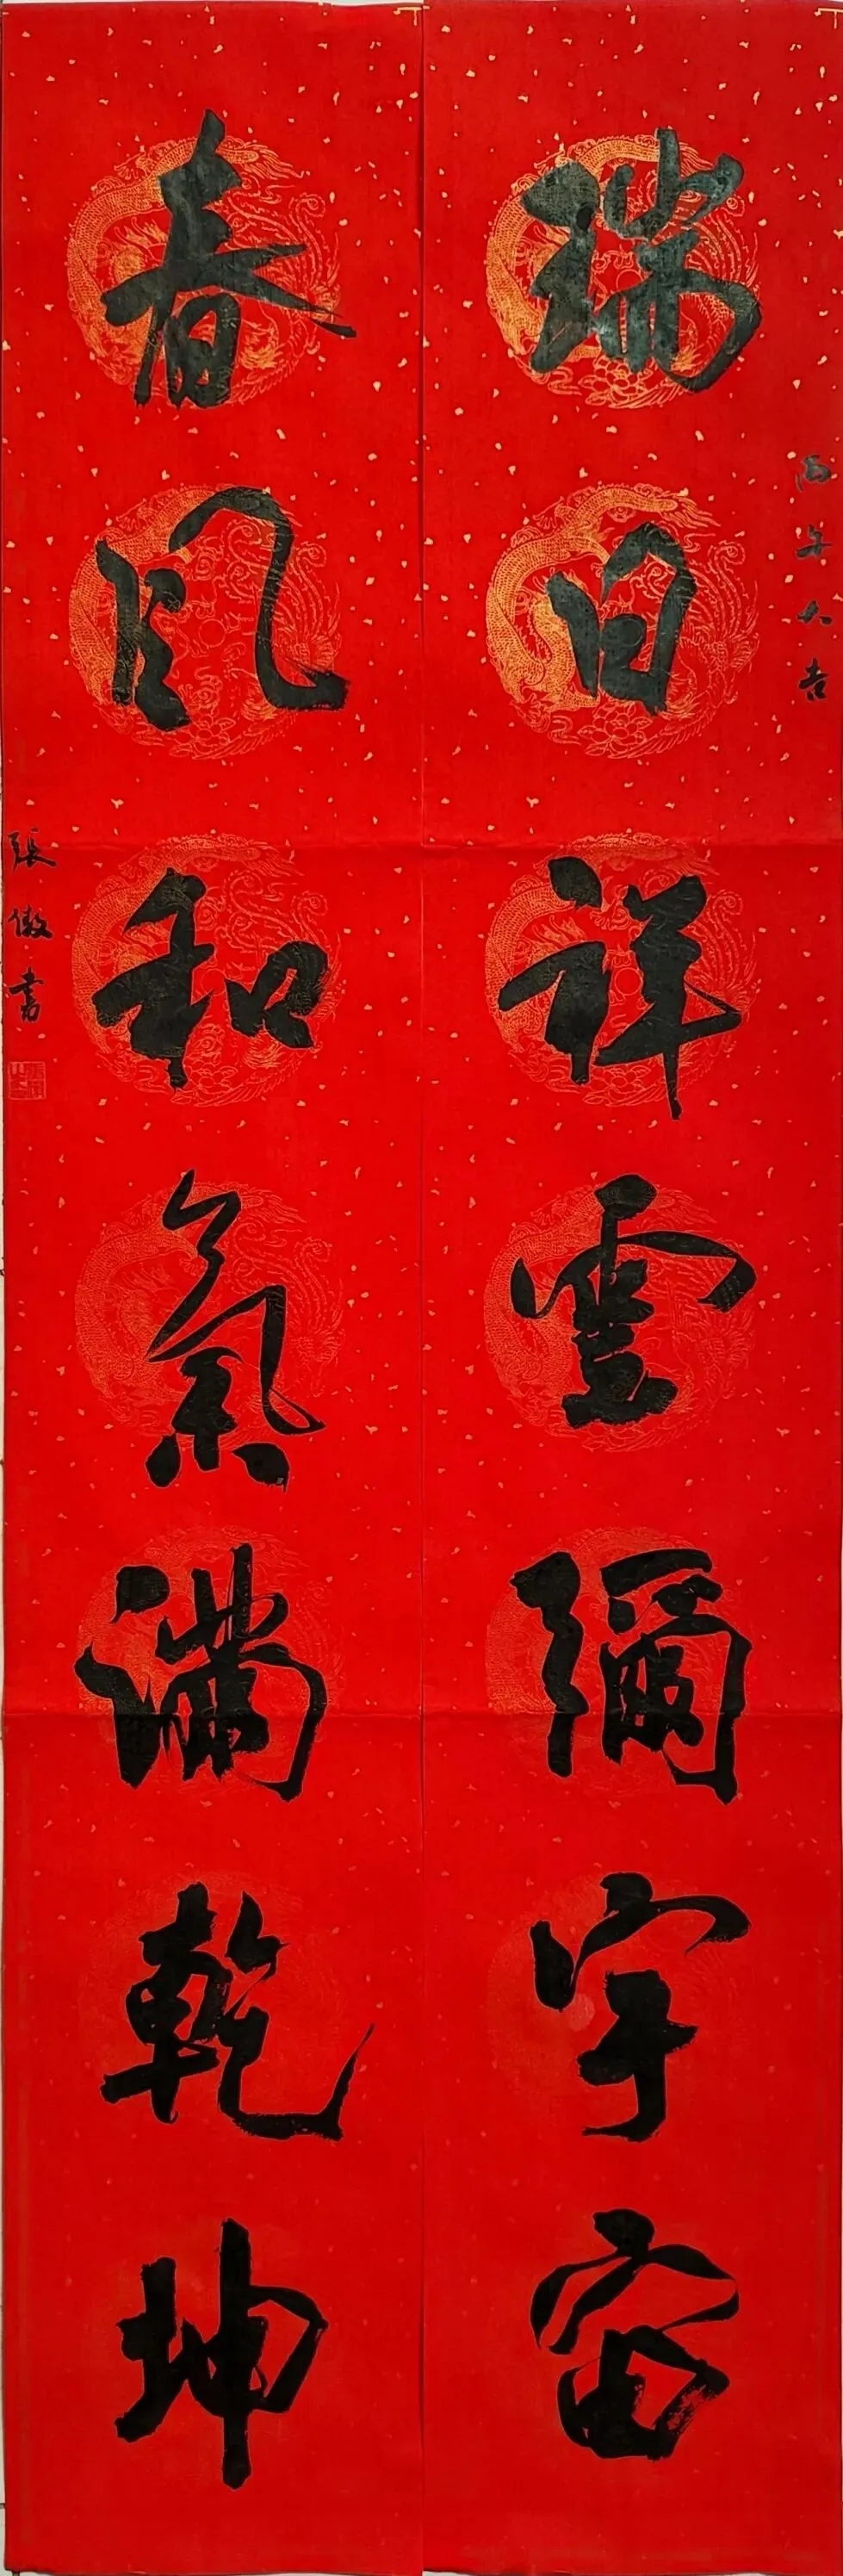 丙午大吉
瑞日祥雲彌宇宙
春風和氣滿乾坤
張傲書